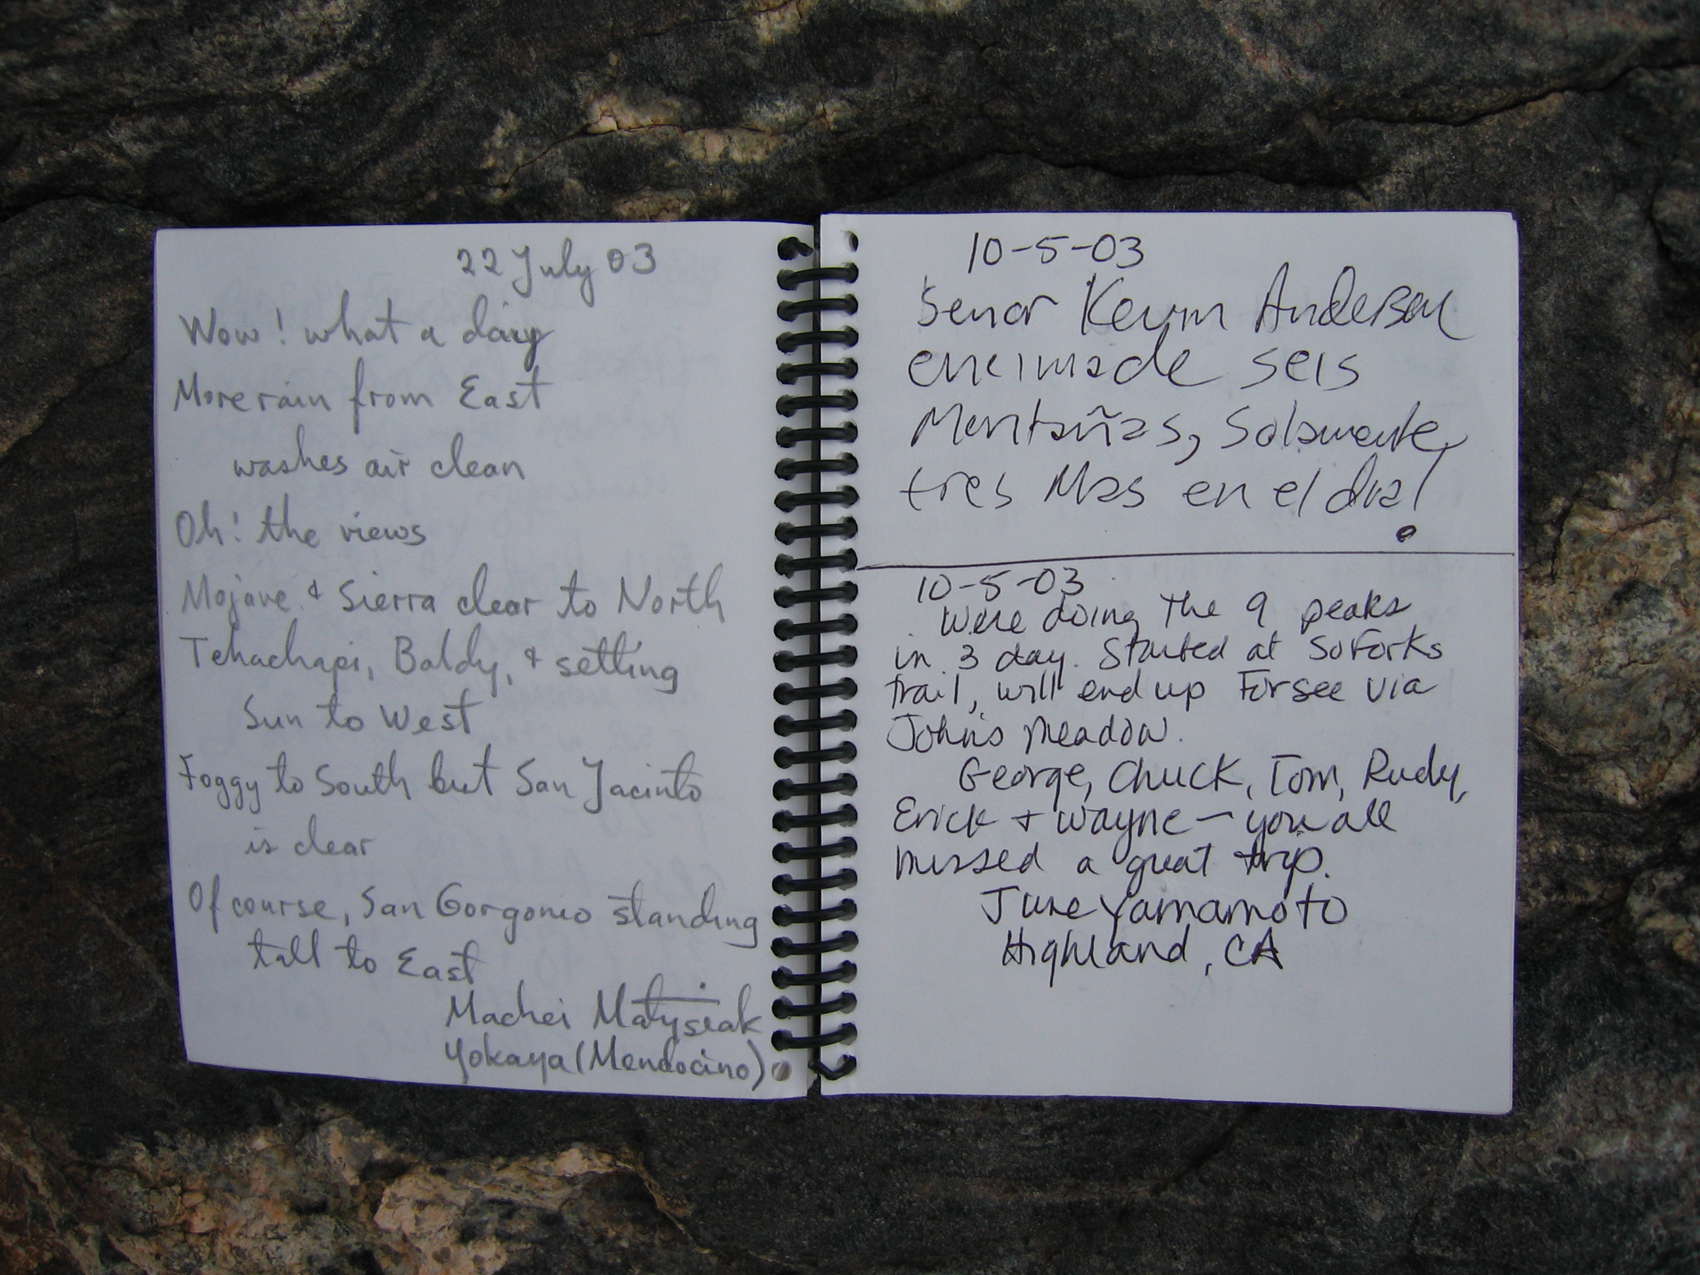 22 July 03
Wow! what a day
More rain from East
washes air clean
Oh! the views
Mojave & Sierra clear to North
Tehachapi, Baldy, & setting
Sun to West
Foggy to South but San Jacinto
is clear
Of course, San Gorgonio standing
tall to East
Machei Matysiak
Yokaya (Mendocino)
10-5-03
Senor Kevin Anderson
encimade seis
Montañas, Solamente
tres Mas en el dia!
10-5-03
Were doing the 9 peaks
in 3 day. Started at So Forks
trail, will end up Forsee via
Johns Meadow.
George, Chuck, Tom, Rudy,
Erick + Wayne - you all
missed a great trip.
June Yamamoto
Highland, CA